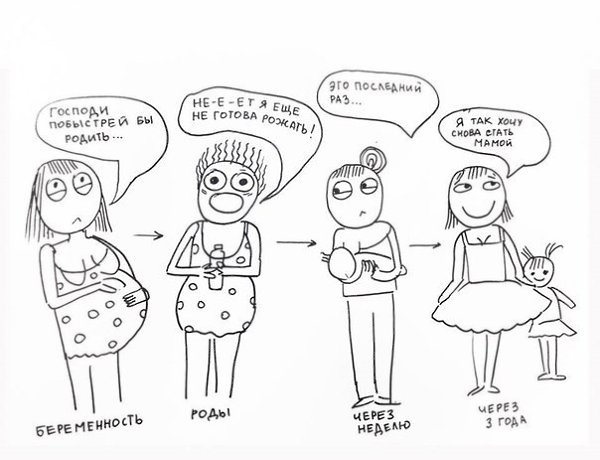 ГОСПОДИ
ПОБЫСТРЕЙ БЫ
РОДИТЬ...
НЕ-Е-ЕТ Я ЕЩЕ
НЕ ГОТОВА РОЖАТЬ!
ЭТО ПОСЛЕДНИЙ
РАЗ...
Я ТАК ХОЧУ
СНОВА СТАТЬ
МАМОЙ
БЕРЕМЕННОСТЬ
РОДЫ
ЧЕРЕЗ
НЕДЕЛЮ
ЧЕРЕЗ
3 ГОДА